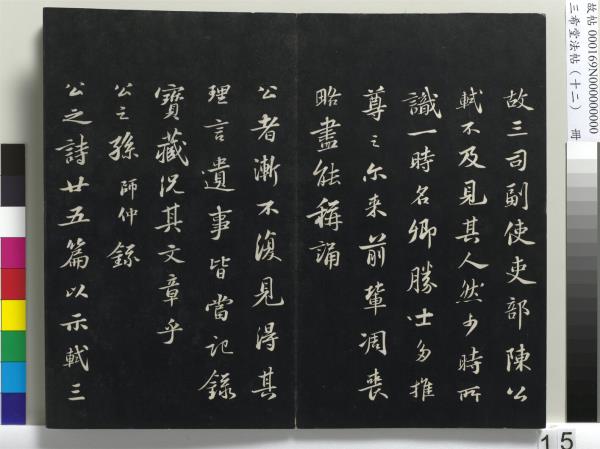 故三司副使吏部陳公
軾不及見其人然少時所
識一時名卿勝士多推
尊之尒来前輩凋喪
略盡能稱誦
公者漸不復見得其
理言遺事皆當記錄
寶藏況其文章乎
公之孫師仲錄
公之詩廿五篇以示軾三
故帖 000169N000000000
三希堂法帖(十二) 冊
15